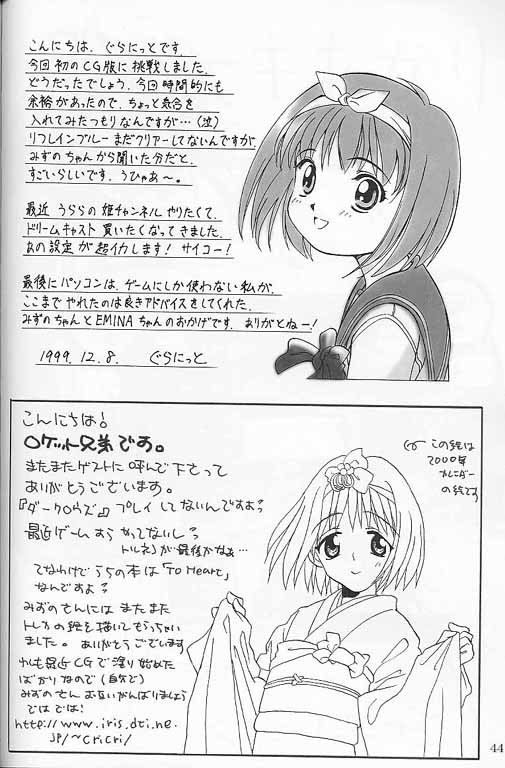 こんにちは、ぐらにっとです。
今回初のCG版に挑戦しました。
どうだったでしょう、今回時間的にも
余裕があったので、ちょっと気合を
入れてみたつもりなんですが…(泣)
リフレインブルーまだクリアーしてないんですが
みずのちゃんから聞いた分だと、
すごいらしいです、うひゃあ〜。
最近 うららの姫チャンネル やりたくて、
ドリームキャスト買いたくなってきました。
あの設定が超イカします! サイコー!
最後にパソコンは、ゲームにしか使わない私が、
ここまでやれたのは良きアドバイスをしてくれた、
みずのちゃんとEMINAちゃんのおかげです、ありがとねー!
1999.12.8. ぐらにっと
こんにちは!
ロケット兄弟です。
またまたゲストに呼んで下さって
ありがとうございます。
プレイしてないんですよ?
最近ゲームすらやってないし?
トルネコが最後かなぁ…
てなわけでうちの本は「To Heart」
なんですよ?
みずのさんには またまた
トレカの絵を描いてもらっちゃい
ました。ありがとうございます
われも最近CGで塗り始めた
ばかりなので(自分で)
みずのさんお互いがんばりましょう
では では!
http://www.iris.dti.ne.
jp/~cricri/
この絵は
2000年
カレンダー
の絵です
44